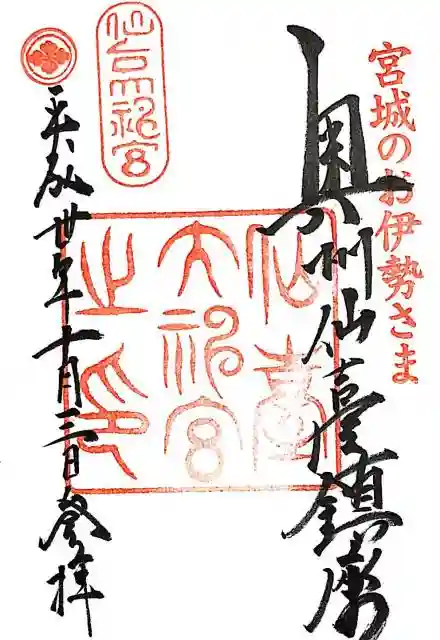 宮城のお伊勢さま
奥州仙臺鎮座
仙臺
大神宮
之印
仙台大神宮
平成卅年十月三日登拝